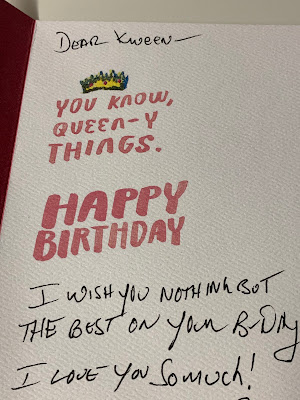 DEAR KWEEN—
YOU KNOW,
QUEEN-Y
THINGS.
HAPPY
BIRTHDAY
I WISH YOU NOTHING BUT
THE BEST ON YOUR B-DAY
I LOVE YOU SO MUCH!